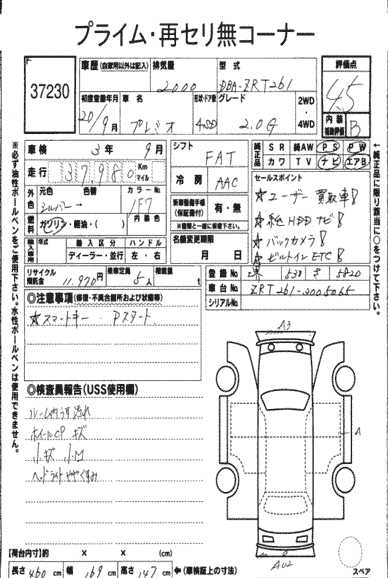 プライム・再セリ無コーナー
37230
車歴 (自家用以外は記入) 排気量 型式 評価点
2000 DBA-ZRT261 4.5
初度登録年月 車名 ドア・形状 グレード 2WD・4WD 内装補助評価
20/9月 プレミオ 4SD 2.0G B
車検 3年9月 シフト FAT
純正品 SR 純AW PS PW
カワ TV ナビ エアB
走行 37980 Km マイル
冷房 AAC
セールスポイント
外色 元色 シルバー 色替 カラーNo. 1F7
☆ ユーザー買取車!!
燃料 ガソリン・軽油・( ) 内装色
新車整備手帳(保証書付) 有・無
☆ 純HDDナビ!!
☆ バックカメラ!!
輸入車 輸入区分 ハンドル
ディーラー・並行 左・右
名義変更期限 月 日
☆ ビルトインETC!!
リサイクル預託金 11,970円 検査定員 5人 積載量 t
登録No. 538 5820
車台No. ZRT261-3005065
シリアルNo.
◎注意事項(修復・不具合箇所および状態等)
☆スマートキー Pスタート
◎検査員報告(USS使用欄)
ルームやけ 汚れ
ホイールCP キズ
小キズ 小凹
ヘッドライトややくすみ
A3
A
AU2
スペア
【荷台内寸】約 × × (cm)
長さ 460 cm 幅 169 cm 高さ 147 cm ←(車検証上の寸法)
※必ず油性ボールペンをご使用下さい。水性ボールペンは使用できません。
※純正品に限り該当に○をつけて下さい。